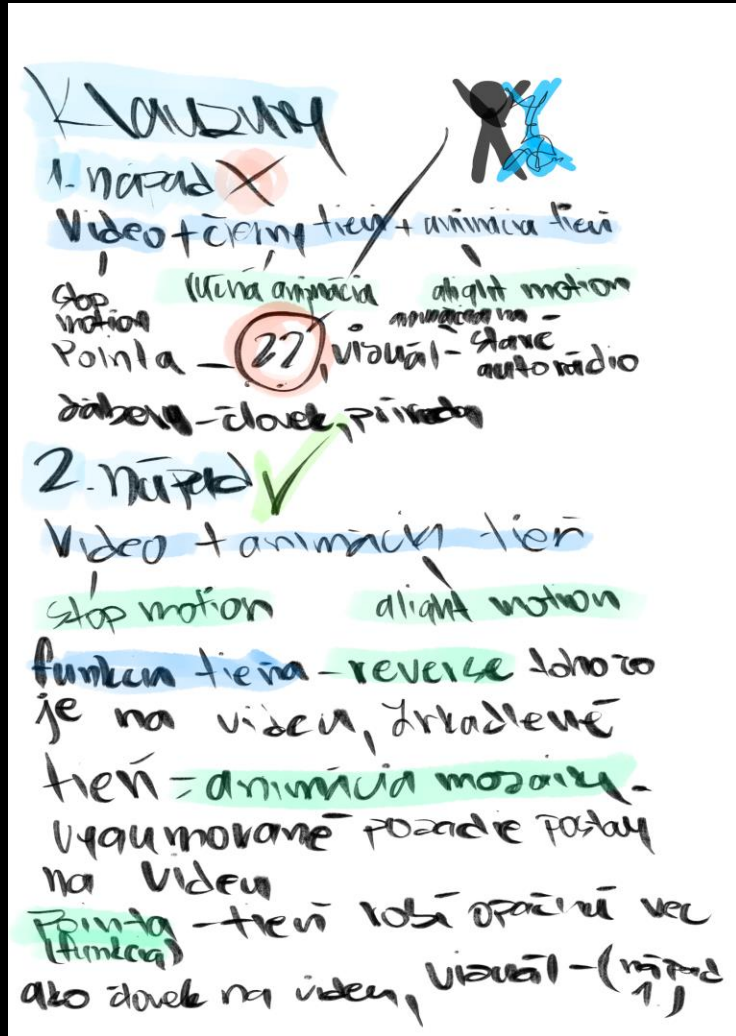 Klauzury
1. nápad X
Video + čierny tieň + animácia tieň
stop motion
ručná animácia
alight motion
Pointa - ??, vizuál - animácia na staré autorádio
zábery - človek, príroda
2. nápad ✓
Video + animácia tieň
stop motion
alight motion
funkcia tieňa - reverse toho čo
je na videu, zrkadlené
tieň = animácia mozaiky -
vygumované pozadie postavy
na videu
Pointa - tieň robí opačnú vec
(funkcia)
ako človek na videu, vizuál - (nápad 1)